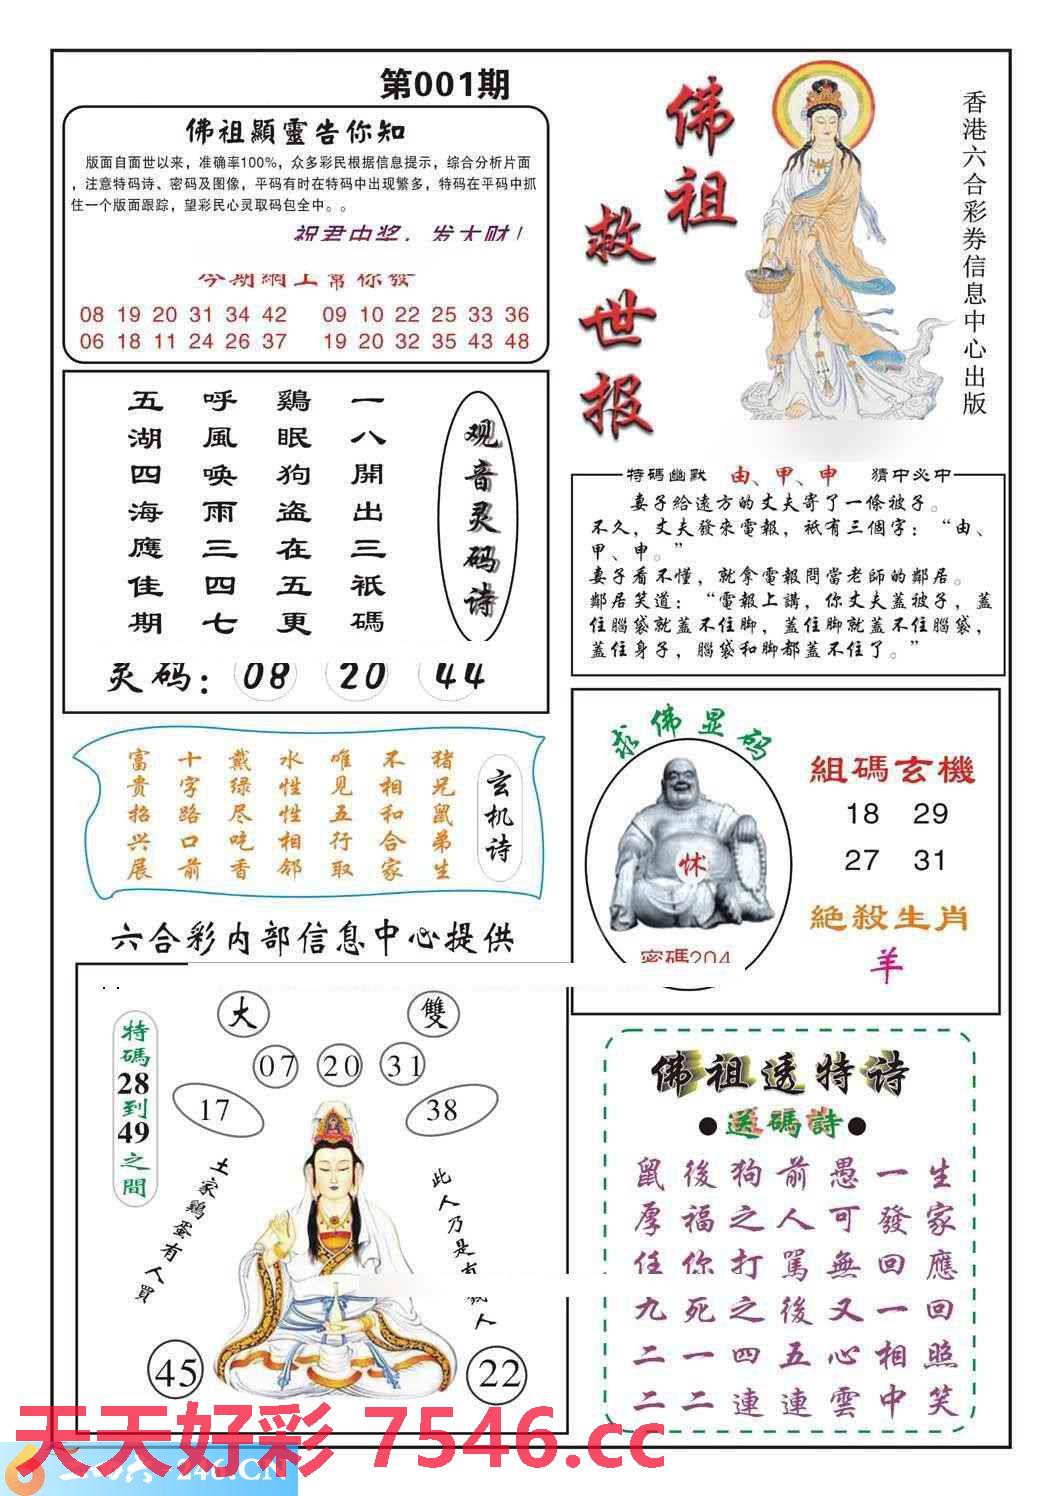 第001期
佛祖顯靈告你知
版面自面世以来，准确率100%，众多彩民根据信息提示，综合分析片面
，注意特码诗、密码及图像，平码有时在特码中出现繁多，特码在平码中抓
住一个版面跟踪，望彩民心灵取码包全中。。
祝君中奖，发大财！
今期網上幫你發
08 19 20 31 34 42 09 10 22 25 33 36
06 18 11 24 26 37 19 20 32 35 43 48
佛祖
救世报
香港六合彩券信息中心出版
观音灵码诗
一八開出三祇碼
鷄眠狗盗在五更
呼風唤雨三四七
五湖四海應佳期
灵码：08 20 44
特碼幽默 由、甲、申 猜中必中
妻子給遠方的丈夫寄了一條被子。
不久，丈夫發來電報，祇有三個字：“由、
甲、申。”
妻子看不懂，就拿電報問當老師的鄰居。
鄰居笑道：“電報上講，你丈夫蓋被子，蓋
住腦袋就蓋不住脚，蓋住脚就蓋不住腦袋，
蓋住身子，腦袋和脚都蓋不住了。”
玄机诗
猪兄鼠弟生
不相和合家
唯见五行取
水性性相邻
戴绿尽吃香
十字路口前
富贵招兴展
求佛显码
怵
密碼204
組碼玄機
18 29
27 31
絶殺生肖
羊
六合彩内部信息中心提供
特碼28到49之間
大 雙
07 20 31
17 38
土家鷄蛋有人買
此人乃是有 人
45 22
佛祖透特诗
●送碼詩●
鼠後狗前愚一生
厚福之人可發家
任你打駡無回應
九死之後又一回
二一四五心相照
二二連連雲中笑
天天好彩 7546.cc
246.CN